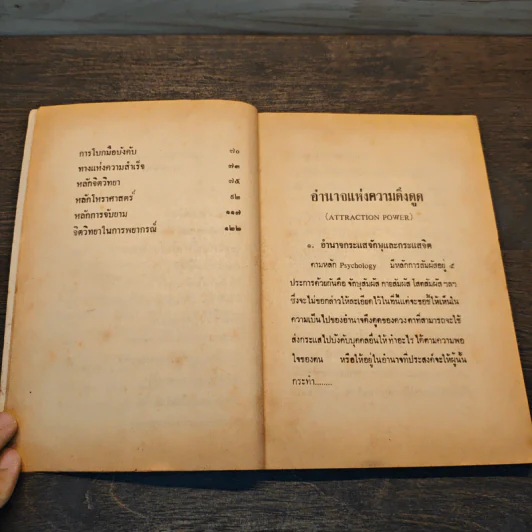 การโบกมือบังคับ ๗๐
ทางแห่งความสำเร็จ ๗๓
หลักจิตวิทยา ๗๕
หลักโหราศาสตร์ ๘๒
หลักการจับยาม ๑๑๗
จิตวิทยาในการพยากรณ์ ๑๒๒
อำนาจแห่งความดึงดูด
(ATTRACTION POWER)
๑. อำนาจกระแสจักษุและกระแสจิต
ตามหลัก Psychology มีหลักการสัมผัสอยู่ ๕
ประการด้วยกันคือ จักษุสัมผัส กายสัมผัส โสตสัมผัส ฯลฯ
ซึ่งจะไม่ขอกล่าวให้ละเอียดไว้ในที่นี้แต่จะขอชี้ให้เห็นใน
ความเป็นไปของอำนาจดึงดูดของดวงตาที่สามารถจะใช้
ส่งกระแสไปบังคับบุคคลอื่นให้ทำอะไร ได้ตามความพอ
ใจของตน หรือให้อยู่ในอำนาจที่ประสงค์จะให้ผู้นั้น
กระทำ........